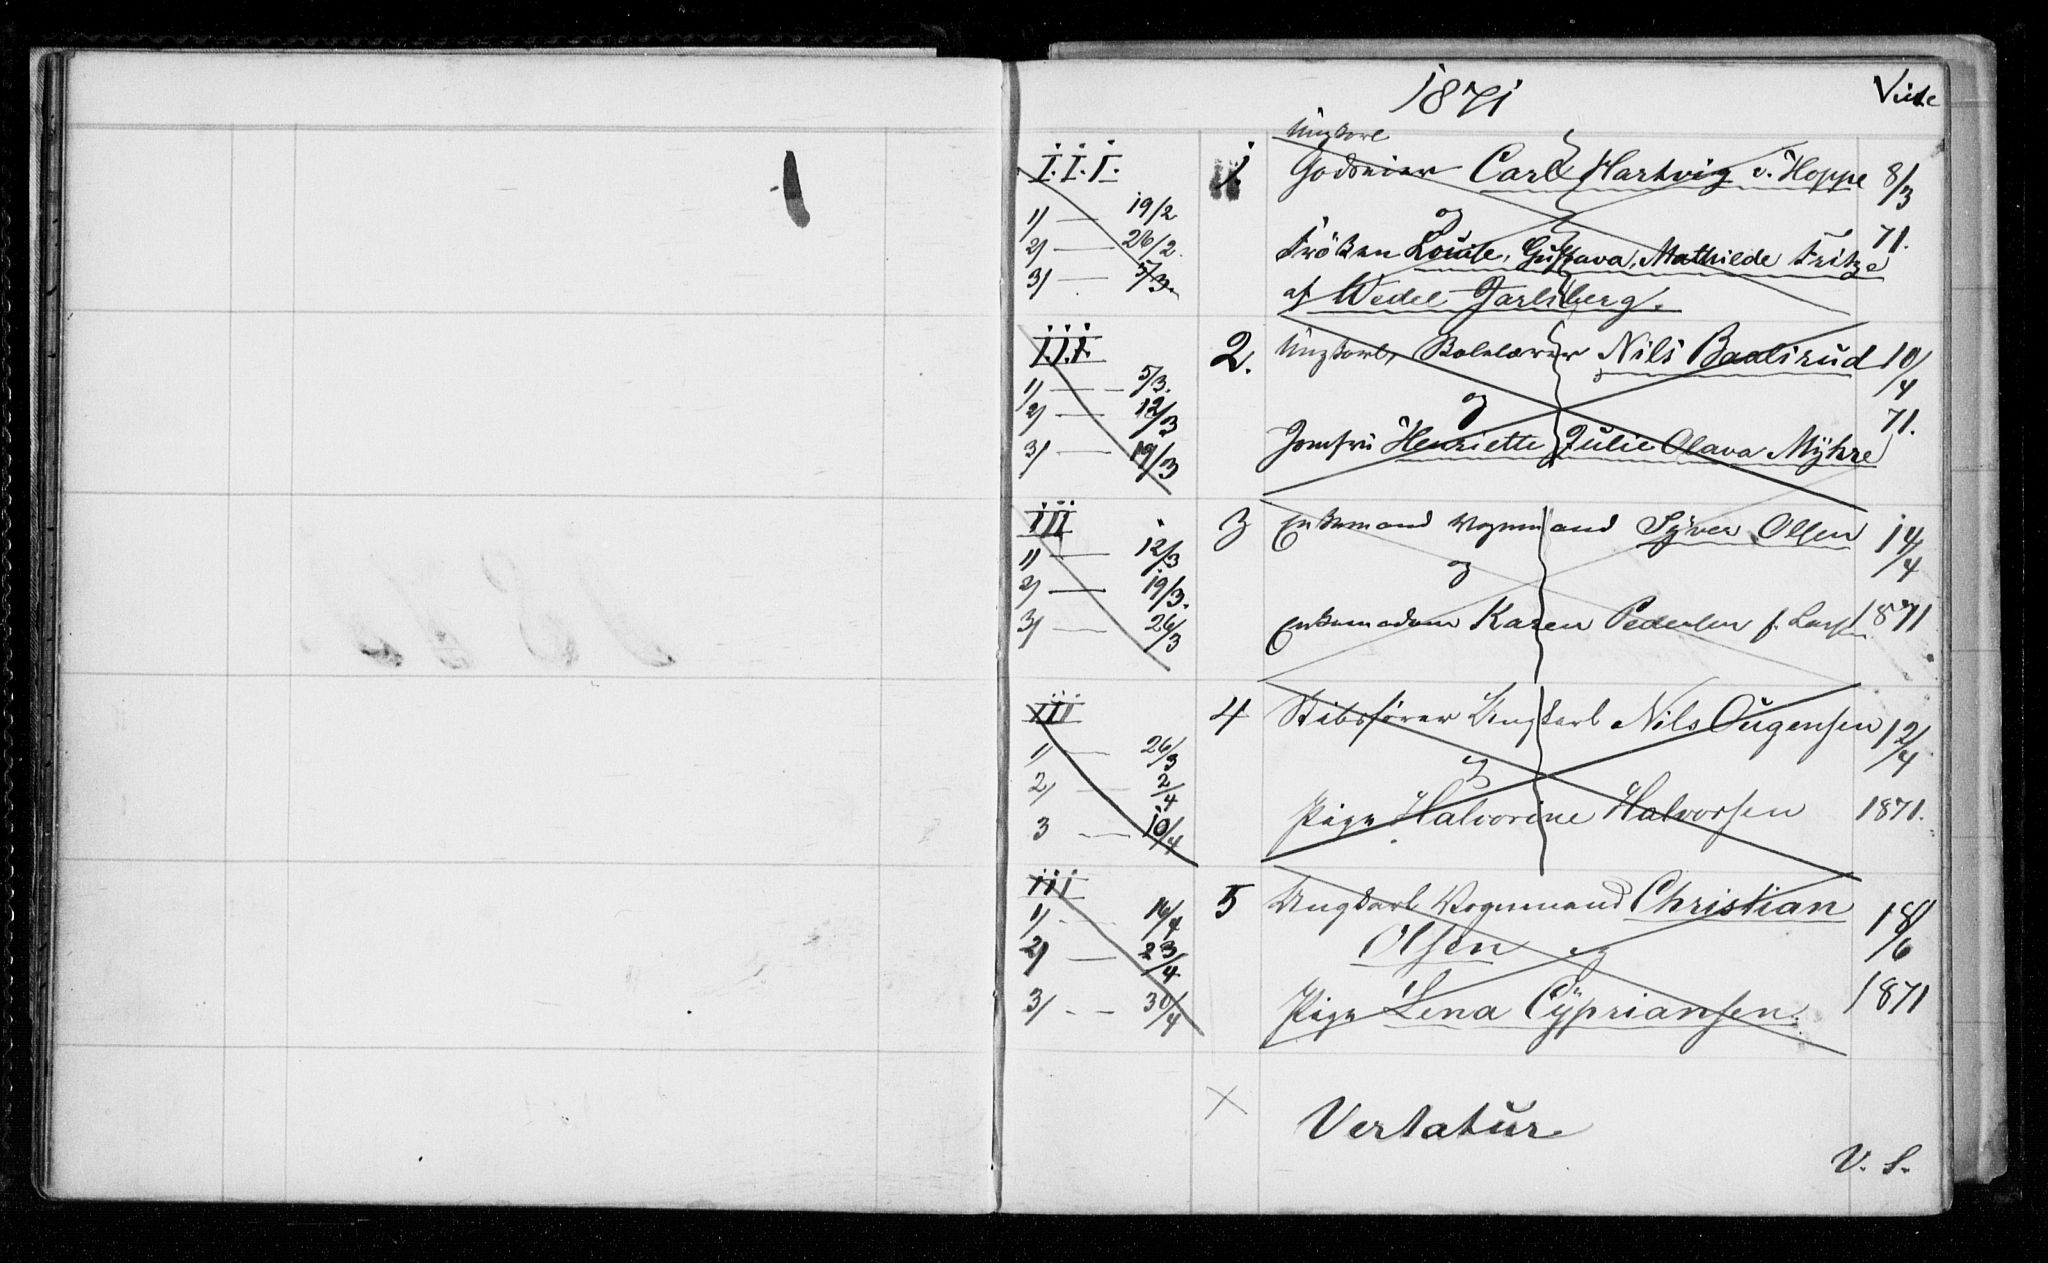 1871
Viede
I.I.I. 1. Ungkarl
Godseier Carl Hartvig v. Hoppe 8/3
1) — 19/2 og 71.
2) — 26/2. Fröken Louise, Gustava, Mathilde Fritze
3) — 5/3. af Wedel Jarlsberg.
I.I.I. 2. Ungkarl, Skolelærer Nils Baalsrud 10/4
1) — 5/3.
2) — 12/3 og 71.
3) — 19/3 Jomfru Henriette Julie Olava Myhre
III 3 Enkemand Vognmand Syver Olsen 14/4
1) — 12/3
2) — 19/3. og
3) — 26/3 Enkemadam Karen Pedersen f. Larsen 1871
III 4 Ungkarl Nils Ougensen 12/4
1) — 26/3
2) — 2/4 og
3 — 10/4 Pige Halvorine Halvorsen 1871.
III 5 Ungkarl Vognmand Christian 18/6
1) — 16/4
2) — 23/4 Olsen og
3) — 30/4 Pige Lena Cypriansen. 1871
Vertatur
V. S.